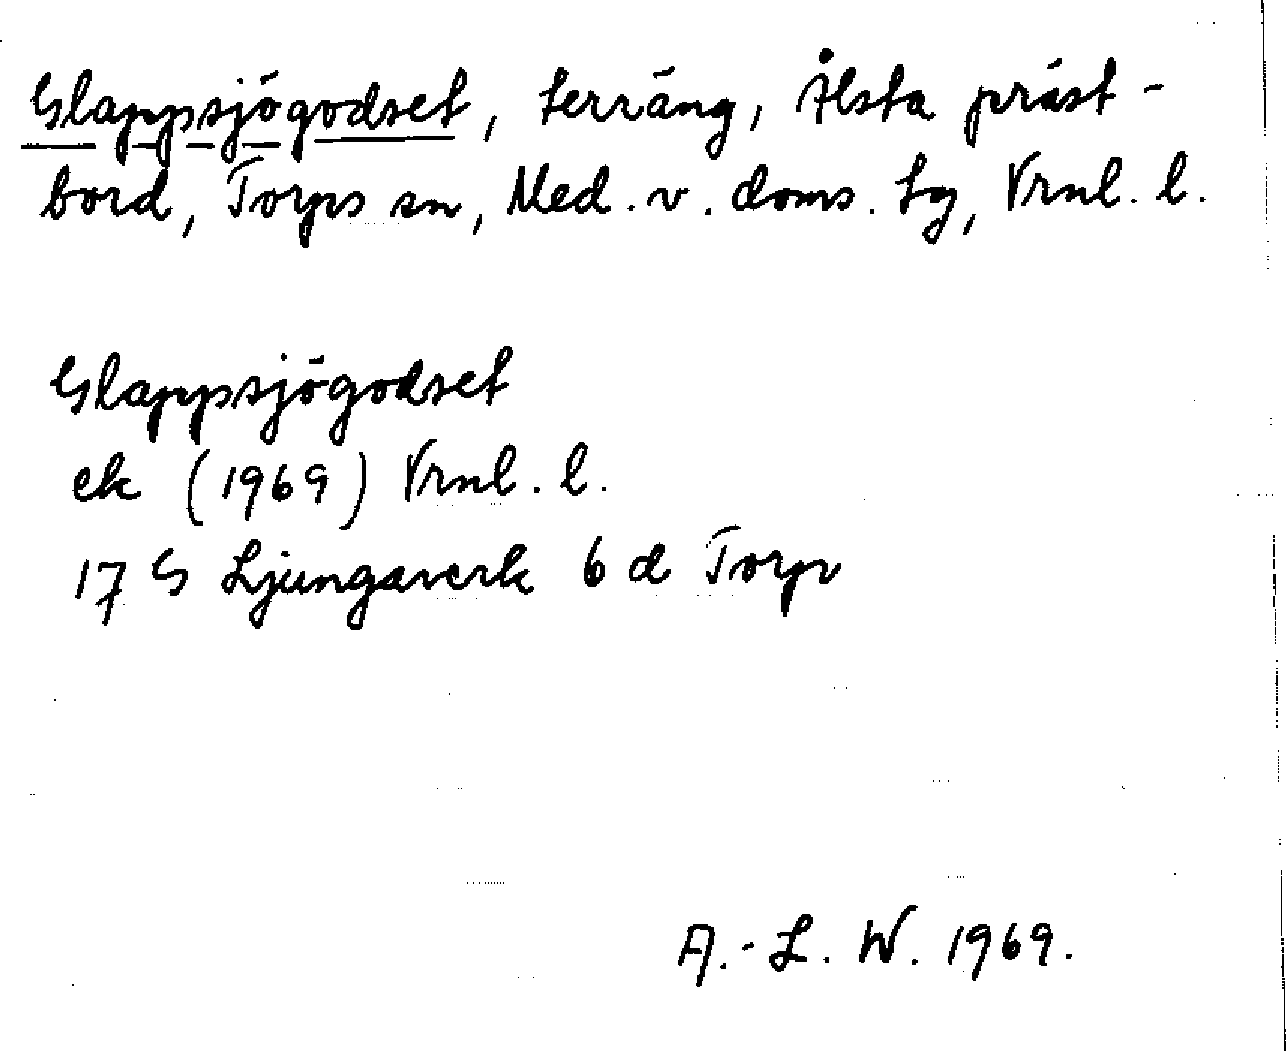 Glappsjögodset, terräng, Ålsta präst-
bord, Torps sn, Med. v. doms. tg, Vrnl. l.
Glappsjögodset
ek (1969) Vrnl. l.
17 G Ljungaverk 6 d Torp
A.-L. W. 1969.